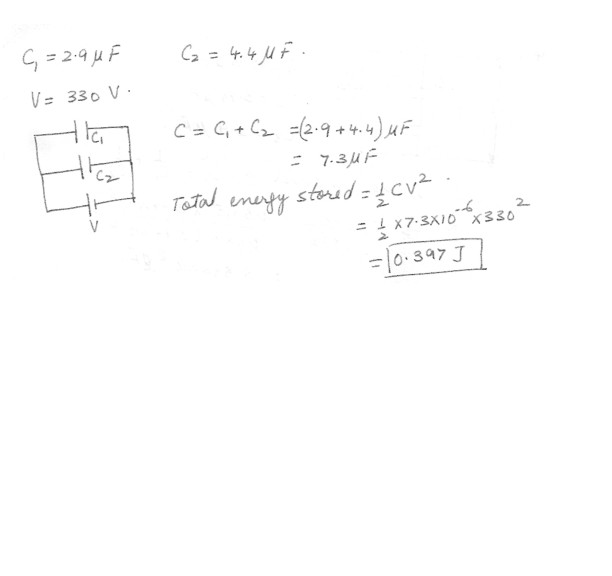 C₁ = 2.9 μF C₂ = 4.4 μF.
V = 330 V.
C₁
C₂
V
C = C₁ + C₂ = (2.9 + 4.4) μF
= 7.3 μF
Total energy stored = ½ CV².
= ½ × 7.3 × 10⁻⁶ × 330²
= 0.397 J